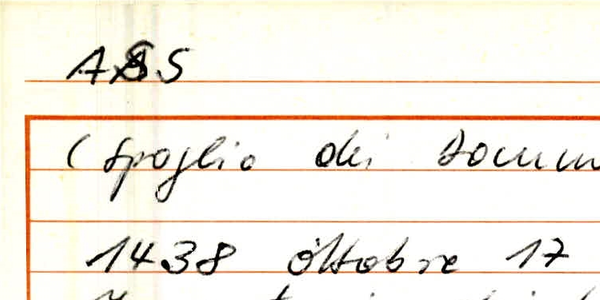 ASS
(Spoglio dei docum
1438 ottobre 17